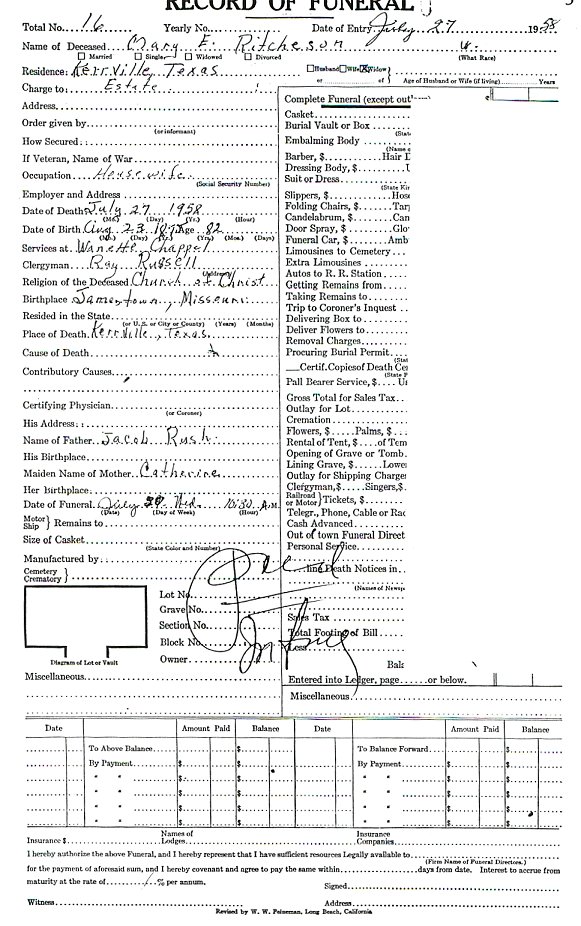 RECORD OF FUNERAL
Total No. 16 Yearly No. Date of Entry July 27 1958
Name of Deceased Mary E. Ritcheson W.
☐ Married ☐ Single ☐ Widowed ☐ Divorced (What Race)
Residence: Kerrville, Texas ☐Husband ☐Wife ☒Widow
or of Age of Husband or Wife (if living) Years
Charge to: Estate
Address
Order given by
(or informant)
How Secured:
If Veteran, Name of War
Occupation Housewife
(Social Security Number)
Employer and Address
Date of Death July 27 1958
(Mo.) (Day) (Yr.) (Hour)
Date of Birth Aug 23 Age 82
(Mo.) (Day) (Yr.) (Yrs.) (Mos.) (Days)
Services at Wanette Chappel
Clergyman Ray Russell
(Address)
Religion of the Deceased Church of Christ
Birthplace Jamestown, Missouri
Resided in the State
(or U. S. or City or County) (Years) (Months)
Place of Death Kerrville, Texas
Cause of Death
Contributory Causes
Certifying Physician
(or Coroner)
His Address:
Name of Father Jacob Rush
His Birthplace
Maiden Name of Mother Catherine
Her Birthplace
Date of Funeral July Wed. 10:30 A.M.
(Date) (Day of Week) (Hour)
Motor
Ship } Remains to
Size of Casket
(State Color and Number)
Manufactured by:
Cemetery
Crematory }
Lot No.
Grave No.
Section No.
Block No.
Owner
Diagram of Lot or Vault
Miscellaneous
Complete Funeral (except out
Casket
Burial Vault or Box
(Stat
Embalming Body
(Name o
Barber, $ Hair D
Dressing Body, $
Suit or Dress
(State Kin
Slippers, $ Hose
Folding Chairs, $ Tar
Candelabrum, $ Can
Door Spray, $ Glo
Funeral Car, $ Amb
Limousines to Cemetery
Extra Limousines
Autos to R. R. Station
Getting Remains from
Taking Remains to
Trip to Coroner's Inquest
Delivering Box to
Deliver Flowers to
Removal Charges
Procuring Burial Permit
(Stat
Certif. Copies of Death Cer
(State P
Pall Bearer Service, $
Gross Total for Sales Tax
Outlay for Lot
Cremation
Flowers, $ Palms, $
Rental of Tent, $ of Tem
Opening of Grave or Tomb
Lining Grave, $ Lowe
Outlay for Shipping Charge
Clergyman, $ Singers, $
Railroad
or Motor } Tickets, $
Telegr., Phone, Cable or Rad
Cash Advanced
Out of town Funeral Direct
Personal Service
Death Notices in
(Names of Newsp
Sales Tax
Total Footing of Bill
Less
Bala
Entered into Ledger, page or below.
Miscellaneous
Paid In full
Date Amount Paid Balance Date Amount Paid Balance
To Above Balance $ To Balance Forward $
By Payment $ $ By Payment $ $
" " $ $ " " $ $
" " $ $ " " $ $
" " $ $ " " $ $
" " $ $ " " $ $
Insurance $ Names of Lodges Insurance Companies
I hereby authorize the above Funeral, and I hereby represent that I have sufficient resources Legally available to
(Firm Name of Funeral Directors.)
for the payment of aforesaid sum, and I hereby covenant and agree to pay the same within days from date. Interest to accrue from
maturity at the rate of % per annum.
Signed
Witness Address
Revised by W. W. Peineman, Long Beach, California